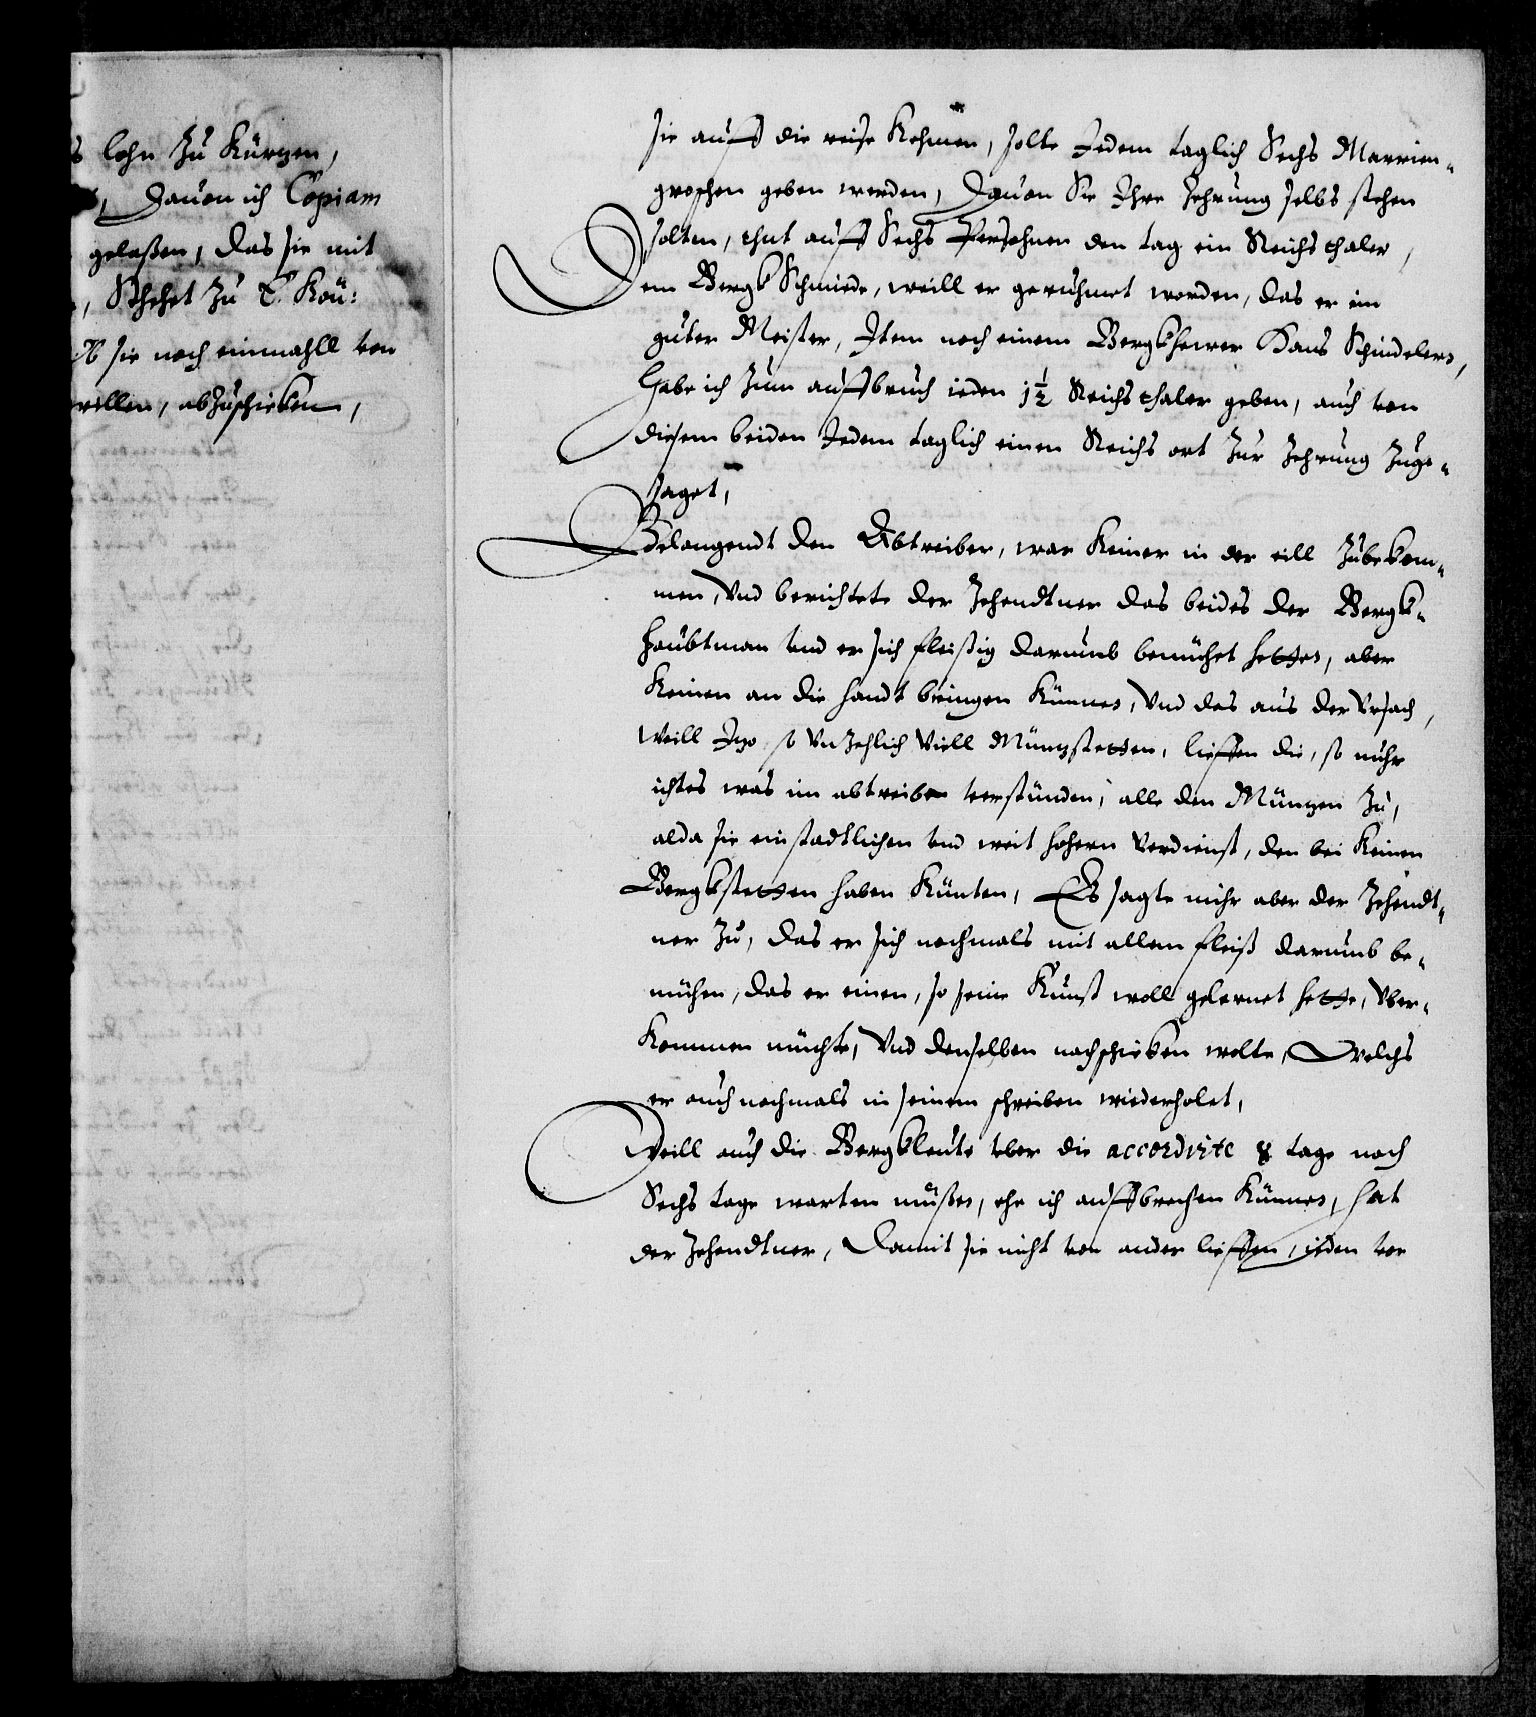 lohn zu kürtzen,
, Dauon ich Copiam
gelaßen, das sie mit
, Stehet zu E. Kön:
Ob sie noch einmahll von
wollen, abzuschicken,
sie auff die reise kehmen, solte Jedem taglich Sechs Marrien-
groschen geben werden, Dauon Sie Ihre Zehrung selbs stehen
solten, thut auff Sechs Persohnen den tag ein Reichsthaler,
Dem Bergk Schmiede, weill er geruhmet worden, das er ein
guter Meister, Item noch einem Bergkhewer Hans Schindelers,
habe ich zum auffbruch ieden 1½ Reichsthaler geben, auch von
diesem beiden Jedem taglich einen Reichs ort zur Zehrung zuge-
saget,
Belangendt den Abtreiber, war keiner in der eill zubekom-
men, Vnd berichtete der Zehendtner das beides der Bergk-
haubtman vnd er sich fleißig darumb bemühet hetten, aber
keinen an die handt bringen können, Vnd das aus der Vrsach,
Weill Itzo so vnzehlich Viell Müntzstetten, lieffen die, so nuhr
ichtes was im abtreiben verstünden, alle den Müntzen zu,
alda sie ein stadtlichen vnd weit hohern Verdienst, den bei keinen
Bergkstetten haben künten, Es sagte mihr aber der Zehendt-
ner zu, das er sich nochmals mit allem fleiß darumb be-
mühen, das er einen, so seine Kunst woll gelernet hette, vber-
kommen müchte, Vnd denselben nachschicken wolte, Welchs
er auch nochmals in seinem schreiben wiederholet,
Weill auch die Bergkleute vber die accordirte 8 tage noch
Sechs tage warten müßen, ehe ich auffbrechen können, hat
der Zehendtner, Damit sie nicht von ander lieffen, ieden vor